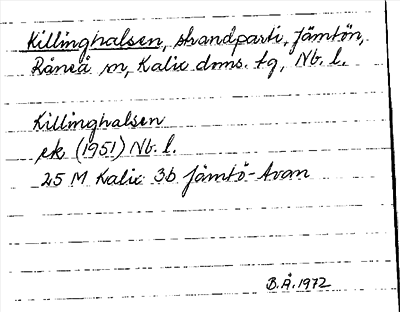 Killinghalsen, strandparti, Jämtön,
Råneå sn, Kalix doms. tg, Nb. l.
Killinghalsen
ek. (1951) Nb. l.
25 M Kalix 3b Jämtö-Avan
B.Å. 1972